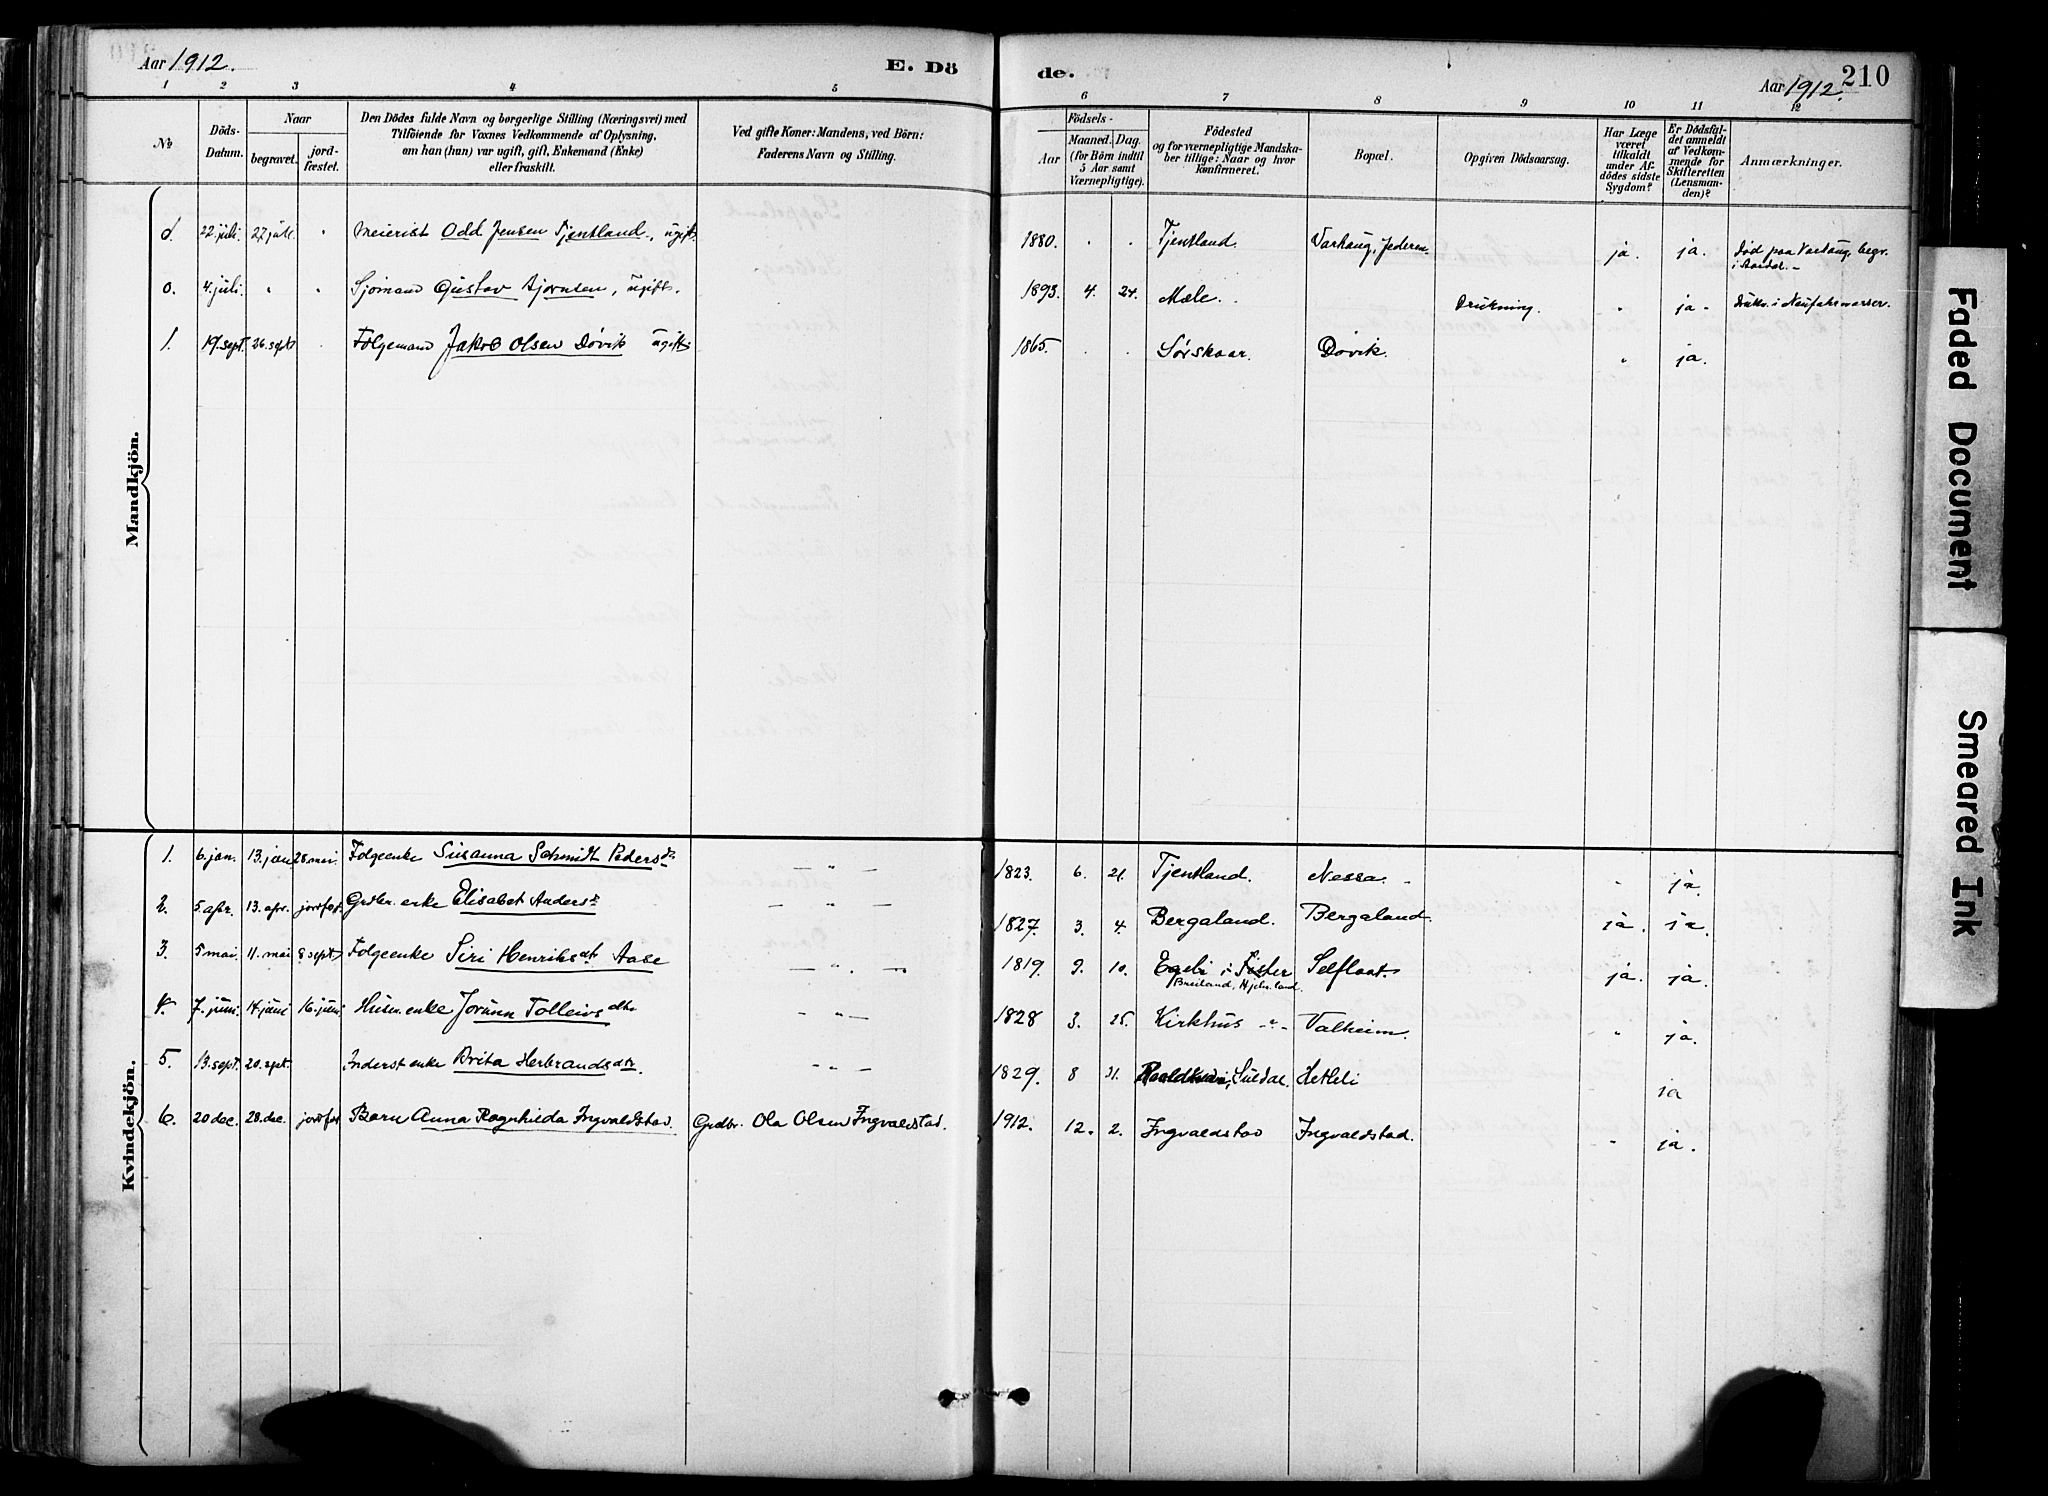 Aar 1912.
E. Dö
de.
Aar 1912.
210
1 2 3 4 5 6 7 8 9 10 11 12
№
Döds-Datum.
Naar
begravet.
jord-fæstet.
Den Dödes fulde Navn og borgerlige Stilling (Næringsvei) med
Tilföiende for Voxnes Vedkommende af Oplysning,
om han (hun) var ugift, gift, Enkemand (Enke)
eller fraskilt.
Ved gifte Koner: Mandens, ved Börn:
Faderens Navn og Stilling.
Födsels-
Aar
Maaned. Dag.
(for Börn indtil
5 Aar samt
Værnepligtige).
Födested
og for værnepligtige Mandska-
ber tillige: Naar og hvor
konfirmeret.
Bopæl.
Opgiven Dödsaarsag.
Har Læge
været
tilkaldt
under Af-
dödes sidste
Sygdom?
Er Dödsfal-
det anmeldt
af Vedkom-
mende for
Skifteretten
(Lensman-
den)?
Anmærkninger.
Mandkjön.
d. 22. juli. 27. juli. " Meierist Odd Jensen Tjentland, ugift. 1880. " " Tjentland. Varhaug, Jæderen ja. ja. Død paa Varhaug, begr.
i Aardal. -
o. 4. juli. " " Sjømand Gustav Bjørnsen, ugift. 1893. 4. 24. Mæle. Drukning. " ja Drukn. i Neufahrwasser.
1. 19. sept. 26. sept. Følgemand Jakob Olsen Døvik ugift 1865. " " Sørskaar. Døvik. " ja.
Kvindekjön.
1. 6. jan. 13. jan 28. mai. Følgeenke Susanna Schmidt Pedersdtr — " — 1823. 6. 21. Tjentland. Nessa. " ja.
2. 5 apr. 13. apr. jordfest. Grdbr. enke Elisabet Andersdtr — " — 1827. 3. 4. Bergaland. Bergaland. ja. ja.
3. 5 mai. 11. mai 8 sept. Følgeenke Siri Henriksdt Aase — " — 1819. 9. 10. Egeli i Fister Selfloat ja. ja.
Breiland, Hjelmeland.
4. 7. juni. 14. juni 16. juni. Husm. enke Jorunn Tolleivsdtr — " — 1828 3. 25. Kirkhus - " - Valheim. " ja.
5. 13. sept. 20. sept. Inderst enke Brita Herbrandsdtr. — " — 1829. 8 31. Suldal. Hetleli ja
6. 20 dec. 28. dec. jordfest Barn Anna Ragnhilda Ingvaldstad. Grdbr. Ola Olsen Ingvaldstad. 1912. 12. 2. Ingvaldstad Ingvaldstad. " ja.
Faded Document
Smeared Ink